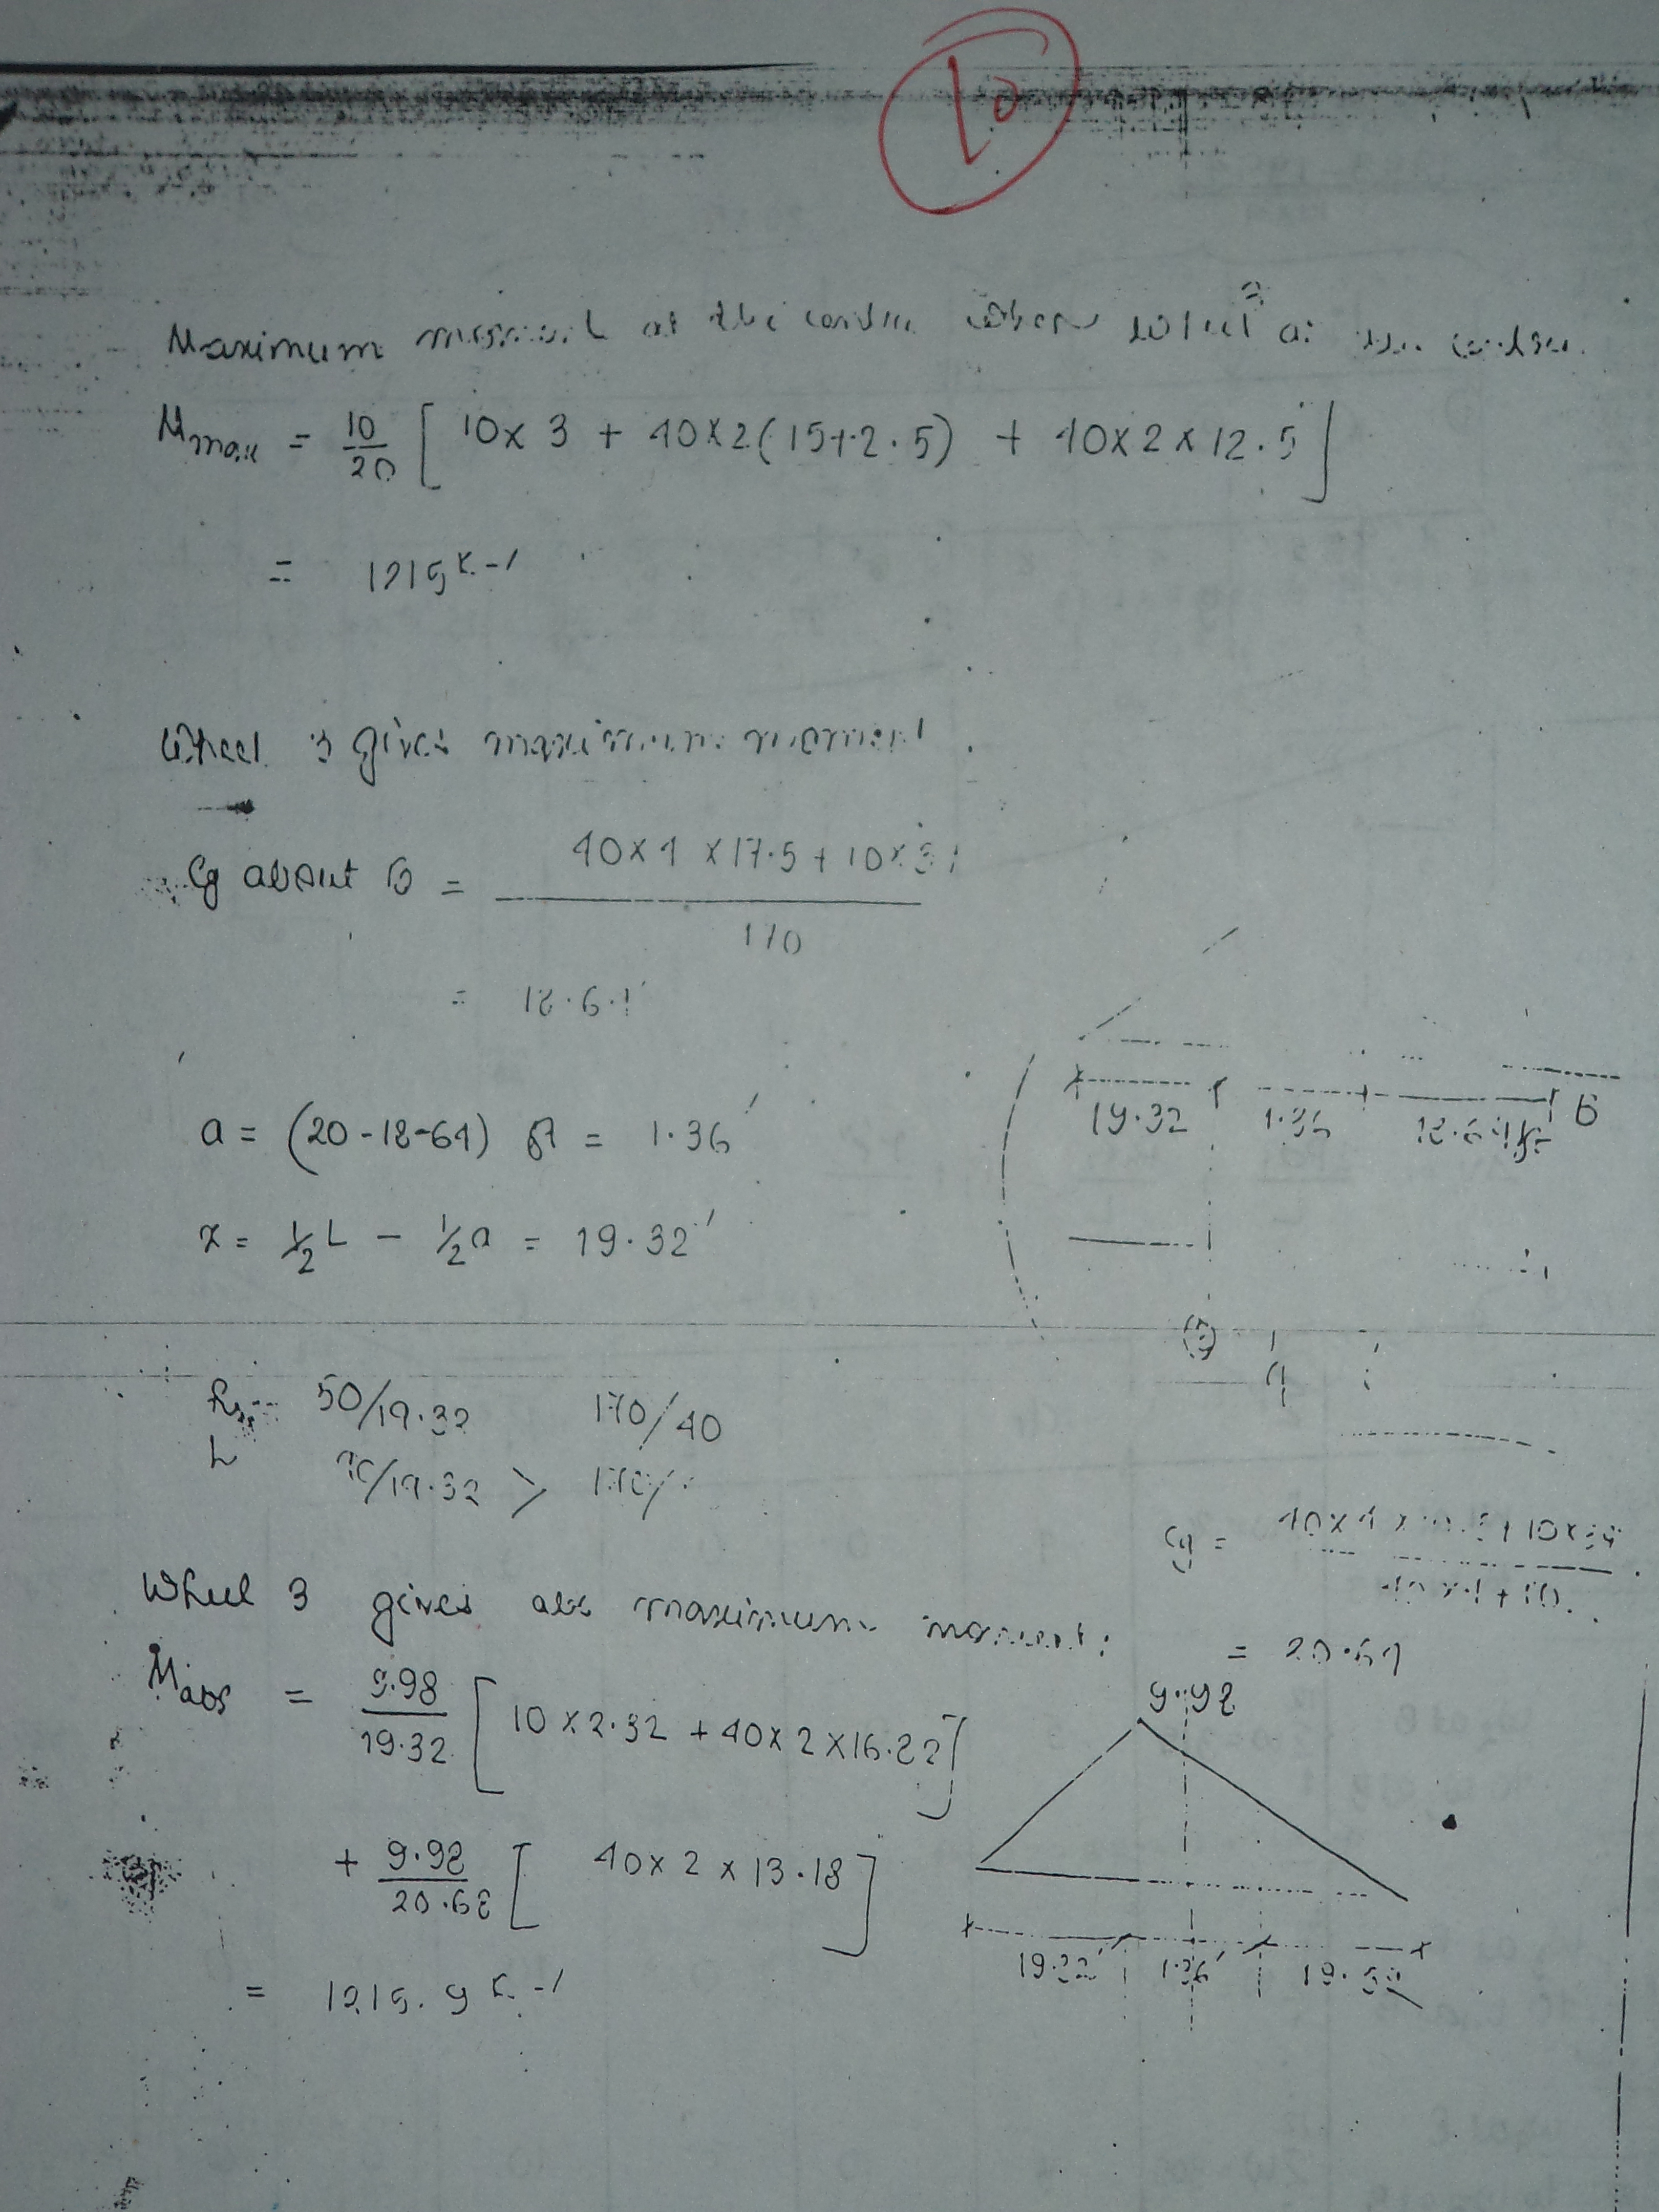 10
Maximum moment at the centre when wheel 3 at the centre.
Mmax = 10/20 [ 10x 3 + 40x2(15+2.5) + 40x2x12.5 ]
= 1215 k-'
Wheel 3 gives maximum moment.
Cg about B = 40x4 x17.5 + 10x
170
= 18.64'
a = (20-18-64) ft = 1.36'
x = ½L - ½a = 19.32'
19.32 1.36 18.64 B
50/19.32 170/40
/19.32 > 170/
3 4
Cg = 40x4 x + 10x
40x4+10
= 20.64
Wheel 3 gives abs maximum moment:
Mabs = 9.98/19.32 [ 10x2.32 + 40x2x16.82 ]
9.98
+ 9.98/20.68 [ 40x2x13.18 ]
19.32' 1.36' 19.32
= 1215.9 k-'